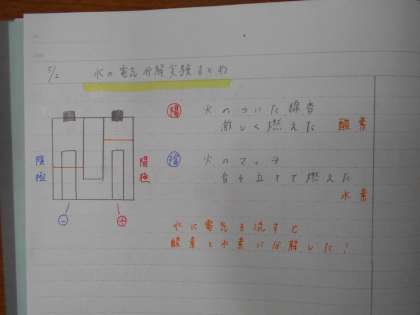 5/2 水の電気分解実験まとめ
陽 火のついた線香
激しく燃えた 酸素
陰 火のマッチ
音を立てて燃えた
水素
陰極
陽極
−
+
水に電気を流すと
酸素と水素に分解した!